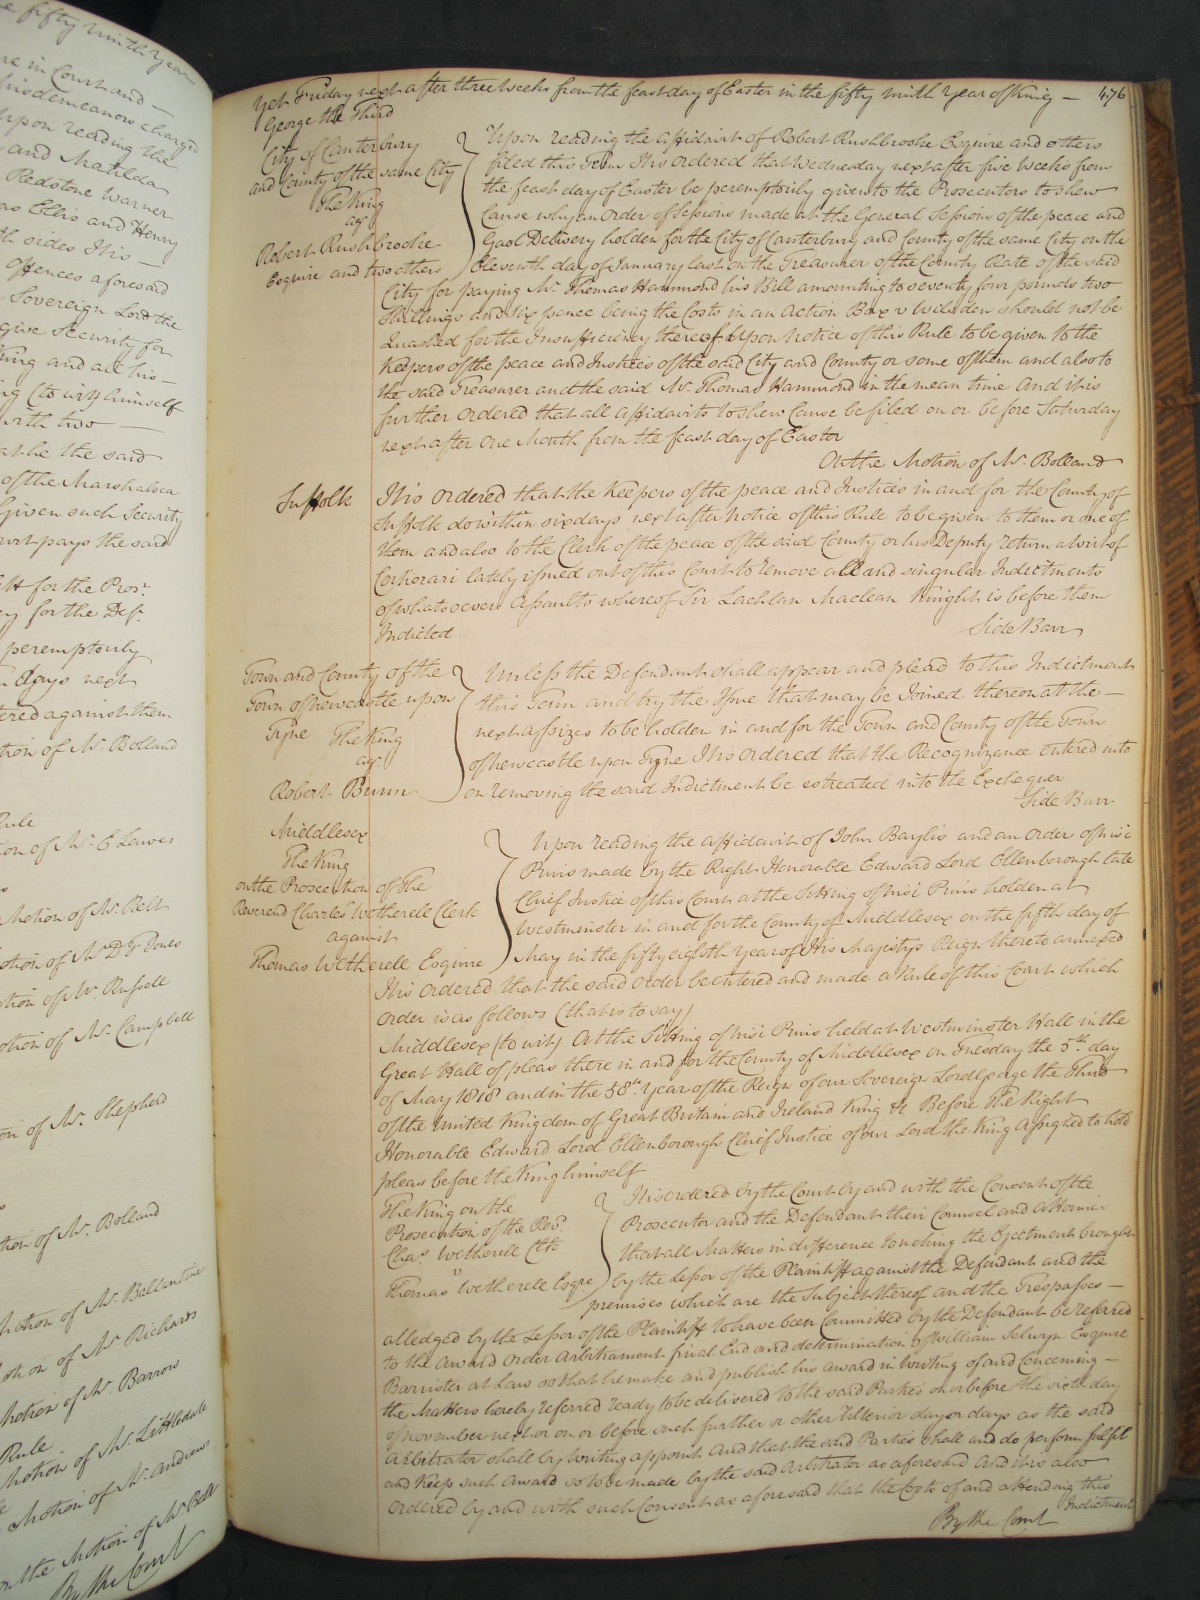 e fifty ninth Year
re in Court and —
misdemeanors charged
Upon reading the
and Matilda
Redstone Warner
as Ellis and Henry
th sides It is —
Offences aforesaid
Sovereign Lord the
give Security for
King and all his —
ing (to wit) himself
with two —
that he the said
of the Marshalsea
Given such Security
Court pays the said
lt for the Pros.r
ey for the Def.t
peremptorily
days next
tered against them
tion of Mr. Bolland
Rule
ion of Mr. E Lawes
Motion of Mr. Pell
otion of Mr. D F Jones
otion of Mr. Russell
otion of Mr. Campbell
on of Mr. Shepherd
tion of Mr. Bolland
Motion of Mr. Ballantine
otion of Mr. Richards
Motion of Mr. Barrow
Rule
Motion of Mr. Littledale
Motion of Mr. Andrews
on the Motion of Mr. Bolt
By the Court
Yet Friday next after three Weeks from the feast day of Easter in the fifty ninth Year of King — 476
George the Third
City of Canterbury
and County of the same City
The King
agt.
Robert Rushbrooke
Esquire and two others
Upon reading the affidavit of Robert Rushbrooke Esquire and others
filed this Term It is ordered that Wednesday next after five Weeks from
the feast day of Easter be peremptorily given to the Prosecutors to shew
Cause why an order of Sessions made at the General Sessions of the peace and
Gaol Delivery holden for the City of Canterbury and County of the same City on the
Eleventh day of January last on the Treasurer of the County Rate of the said
City for paying Mr. Thomas Hammond his Bill amounting to seventy four pounds two
Shillings and six pence being the Costs in an Action Bax v Wilsden should not be
Quashed for the Insufficiency thereof Upon Notice of this Rule to be given to the
Keepers of the peace and Justices of the said City and County or some of them and also to
the said Treasurer and the said Mr. Thomas Hammond in the mean time And it is
further ordered that all affidavits to shew Cause be filed on or before Saturday
next after One Month from the feast day of Easter
On the Motion of Mr. Bolland
Suffolk
It is ordered that the Keepers of the peace and Justices in and for the County of
Suffolk do within six days next after Notice of this Rule to be given to them or one of
them and also to the Clerk of the peace of the said County or his Deputy return a writ of
Certiorari lately issued out of this Court to remove all and singular Indictments
of whatsoever Assaults whereof Sir Lachlan Maclean Knight is before them
Indicted
Side Barr
Town and County of the
Town of Newcastle upon
Tyne The King
agt.
Robert Bunn
Unless the Defendant shall appear and plead to this Indictment
this Term and try the Issue that may be Joined thereon at the —
next assizes to be holden in and for the Town and County of the Town
of Newcastle upon Tyne It is ordered that the Recognizance entered into
on removing the said Indictment be estreated into the Exchequer
Side Barr
Middlesex
The King
on the Prosecution of the
Reverend Charles Wetherele Clerk
against
Thomas Wetherele Esquire
Upon reading the affidavit of John Baylis and an order of nisi
Prius made by the Right Honorable Edward Lord Ellenborough late
Chief Justice of this Court at the Sitting of nisi Prius holden at
Westminster in and for the County of Middlesex on the fifth day of
May in the fifty eighth Year of His Majestys Reign thereto annexed
It is ordered that the said order be entered and made a Rule of this Court which
order is as follows (that is to say)
Middlesex (to wit) At the Sitting of nisi Prius held at Westminster Hall in the
Great Hall of pleas there in and for the County of Middlesex on Tuesday the 5th. day
of May 1818 and in the 58th. Year of the Reign of our Sovereign Lord George the Third
of the United Kingdom of Great Britain and Ireland King &c Before the Right
Honorable Edward Lord Ellenborough Chief Justice of our Lord the King assigned to hold
pleas before the King himself
The King on the
Prosecution of the Revd.
Chas. Wetherele Clk
v
Thomas Wetherele Esqre
It is ordered by the Court by and with the Consent of the
Prosecutor and the Defendant their Counsel and attornies
that all Matters in difference touching the Ejectment brought
by the Lessor of the Plaintiff against the Defendant and the
premises which are the Subject thereof and the Trespasses —
alledged by the Lessor of the Plaintiff to have been Committed by the Defendant be referred
to the award order arbitrament final End and determination of William Selwyn Esquire
Barrister at Law so that he make and publish his award in Writing of and Concerning —
the Matters hereby referred ready to be delivered to the said Parties on or before the sixth day
of November next or on or before such further or other Ulterior day or days as the said
arbitrator shall by Writing appoint And that the said Parties shall and do perform fulfil
and keep such award so to be made by the said arbitrator as aforesaid And it is also
ordered by and with such Consent as aforesaid that the Costs of and attending this
Indictment
By the Court